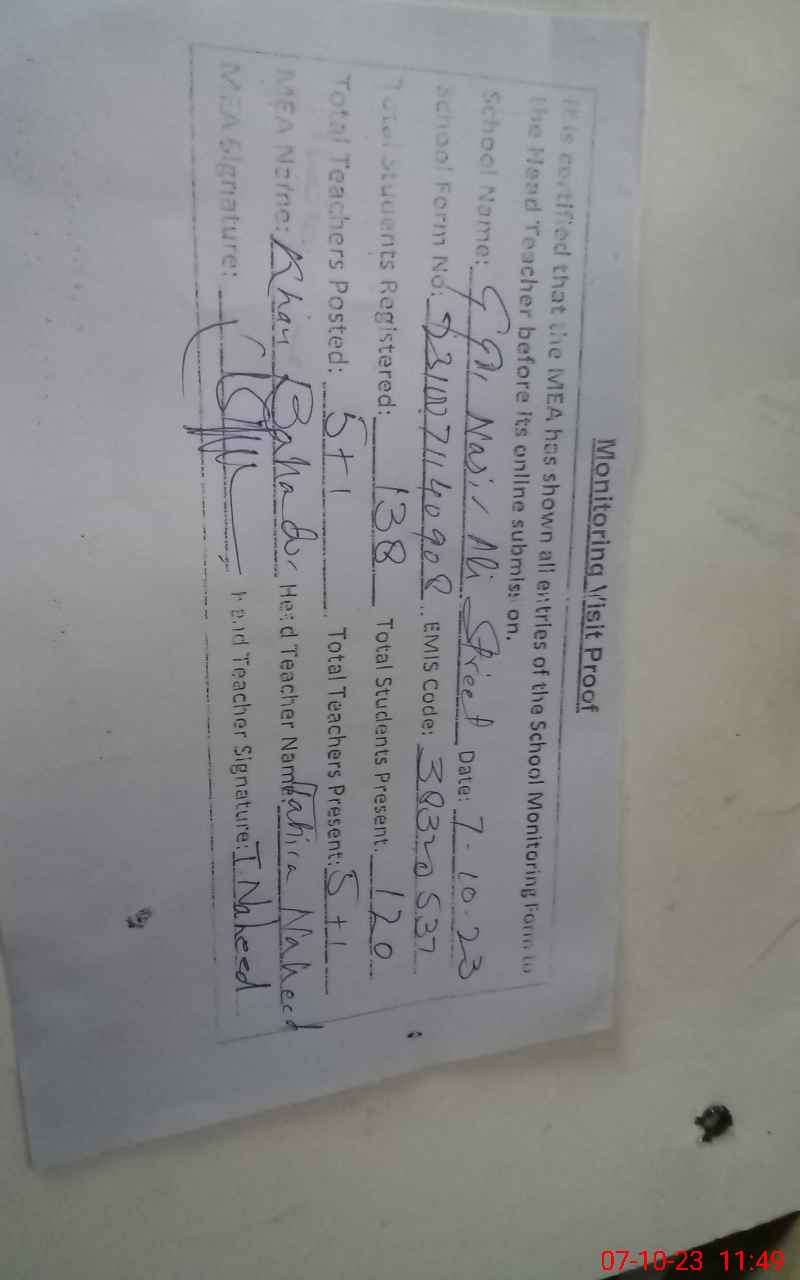 Monitoring Visit Proof
It is certified that the MEA has shown all entries of the School Monitoring Form to
the Head Teacher before its online submission.
School Name: Nasir Ali Street Date: 7-10-23
School Form No: EMIS Code:
Total Students Registered: 138 Total Students Present: 120
Total Teachers Posted: 5+1 Total Teachers Present: 5+1
MEA Name: Khan Bahadur Head Teacher Name: Tahira Naheed
MEA Signature: Head Teacher Signature: T. Naheed
07-10-23 11:49